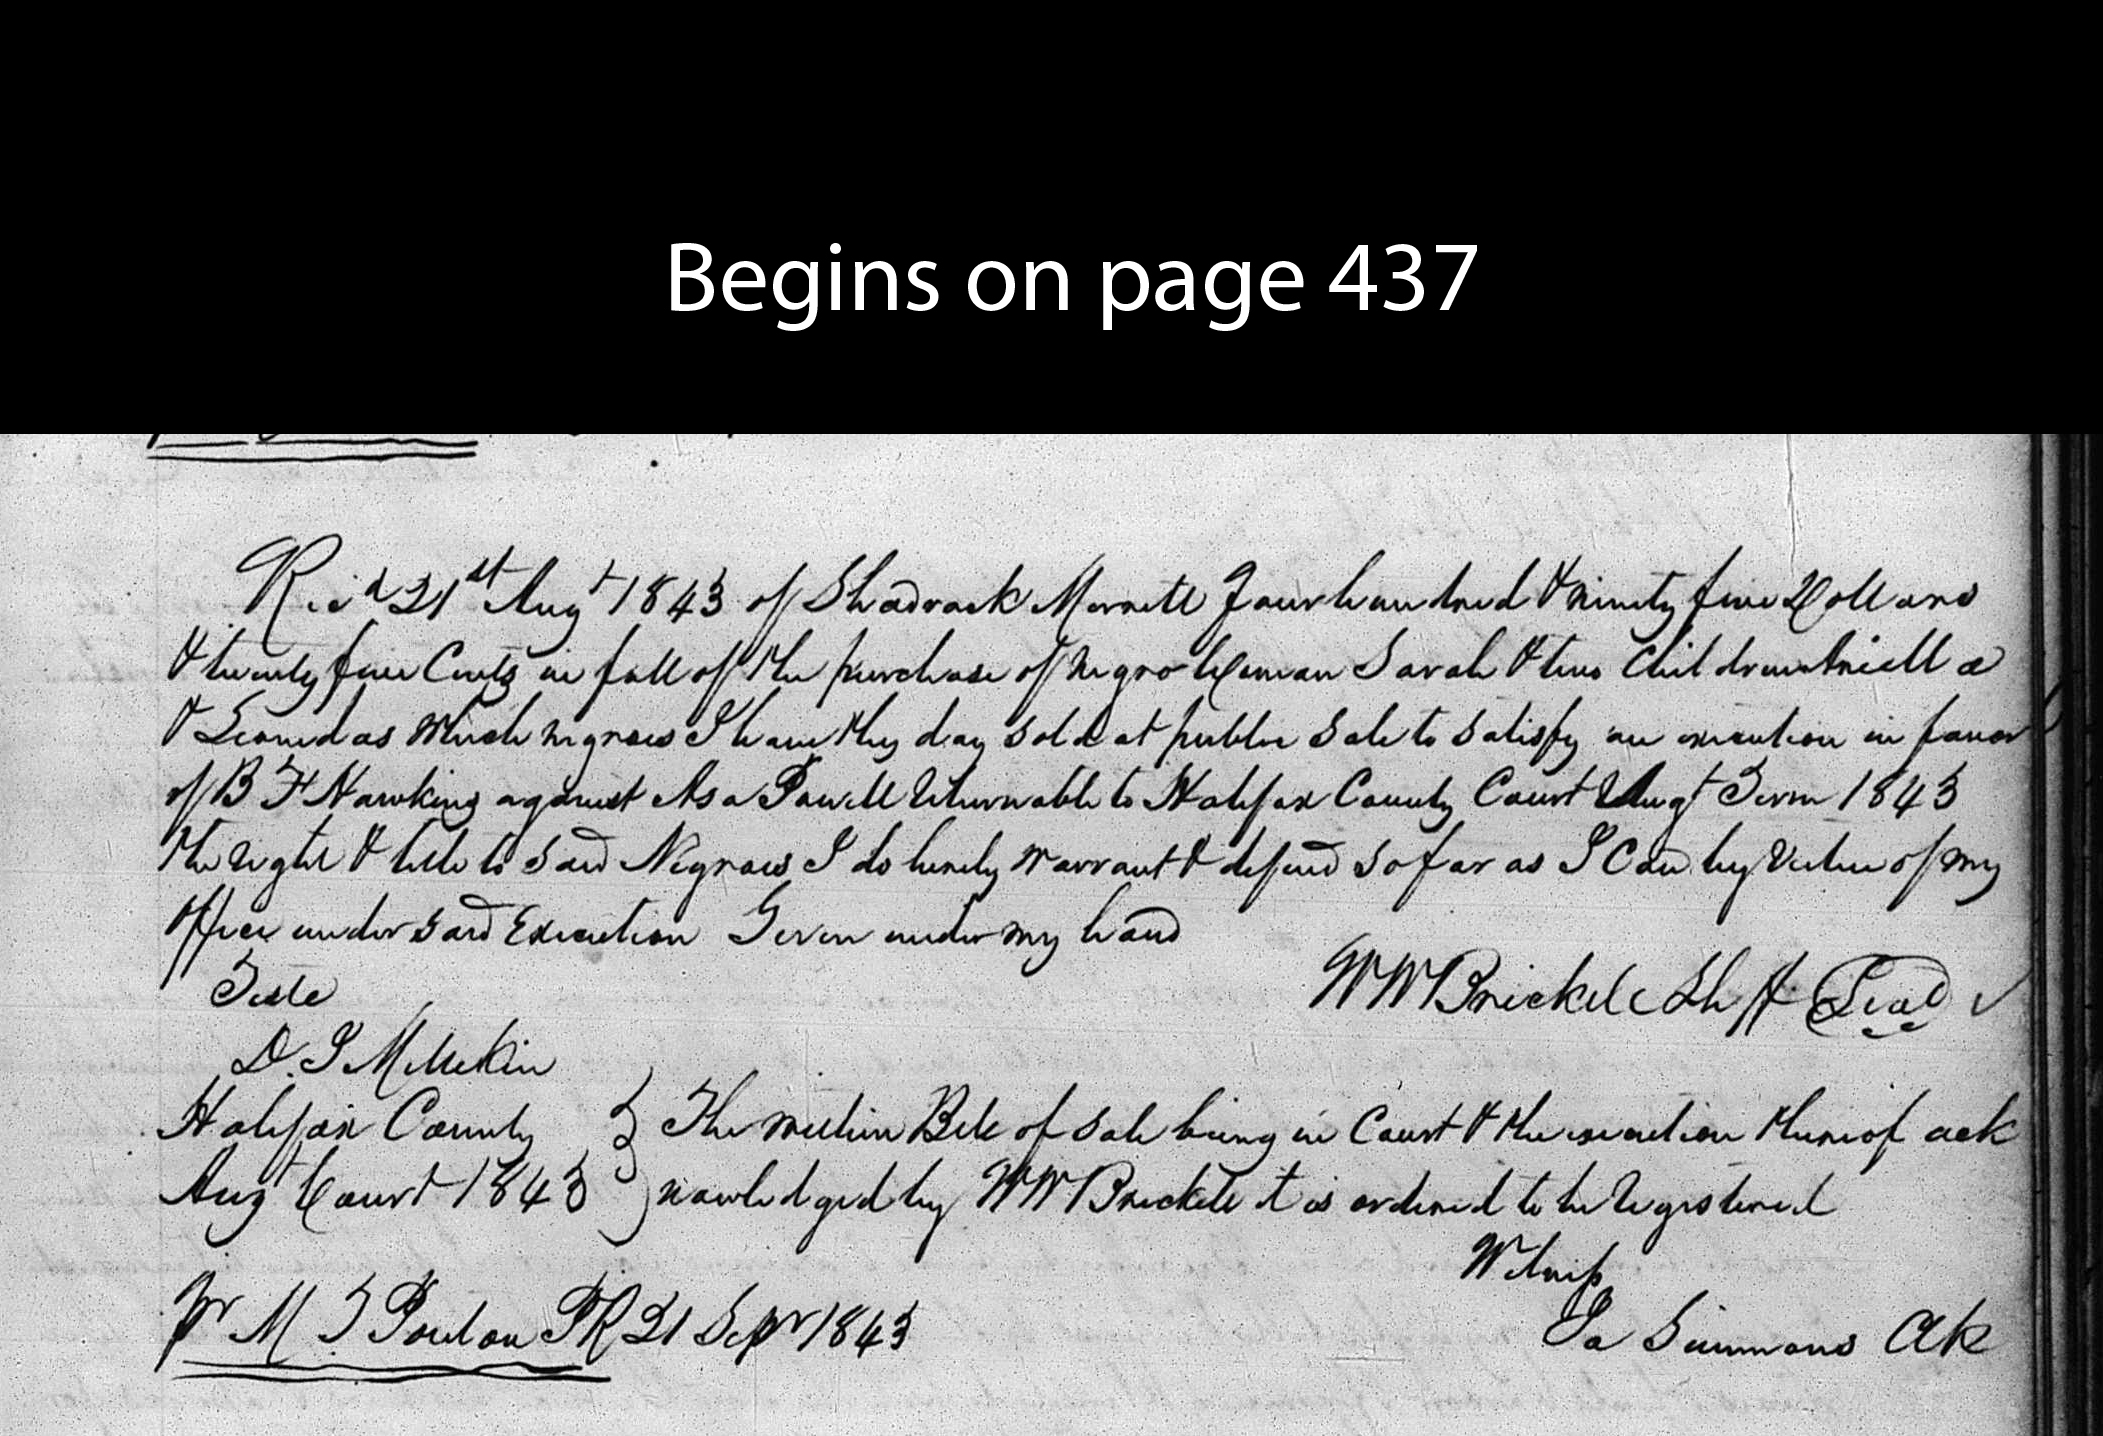 Begins on page 437
Recd 21st Augt 1843 of Shadrack Merritt Four hundred & ninety five Dollars
& twenty five Cents in full of the purchase of Negro Woman Sarah & two Children
& Leonidas which negroes I have this day sold at public Sale to satisfy an execution in favor
of B F Hawkins against Asa Powell Returnable to Halifax County Court Augt Term 1843
the right & title to said Negroes I do hereby warrant & defend so far as I Can by Virtue of my
office under said Execution Given under my hand
Teste
WW Brickell Shff Seal
D. I
Halifax County } The within Bill of Sale being in Court & the execution thereof ack
Augt Court 1843 } nowledged by WW Brickell it is ordered to be Registered
Witness
Pr M T Ponton PR 21 Sepr 1843
Ja Simmons Clk